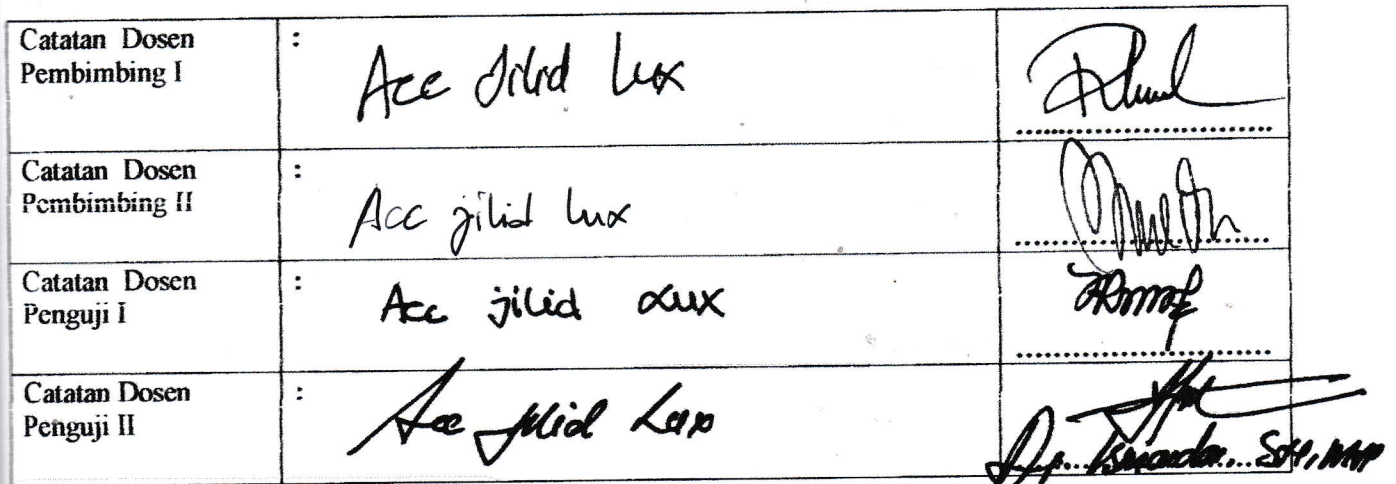 Catatan Dosen
Pembimbing I
:
Acc Jilid Lux
Catatan Dosen
Pembimbing II
:
Acc jilid lux
Catatan Dosen
Penguji I
:
Acc jilid Lux
Catatan Dosen
Penguji II
:
Acc jilid Lux
Dr. Iskandar